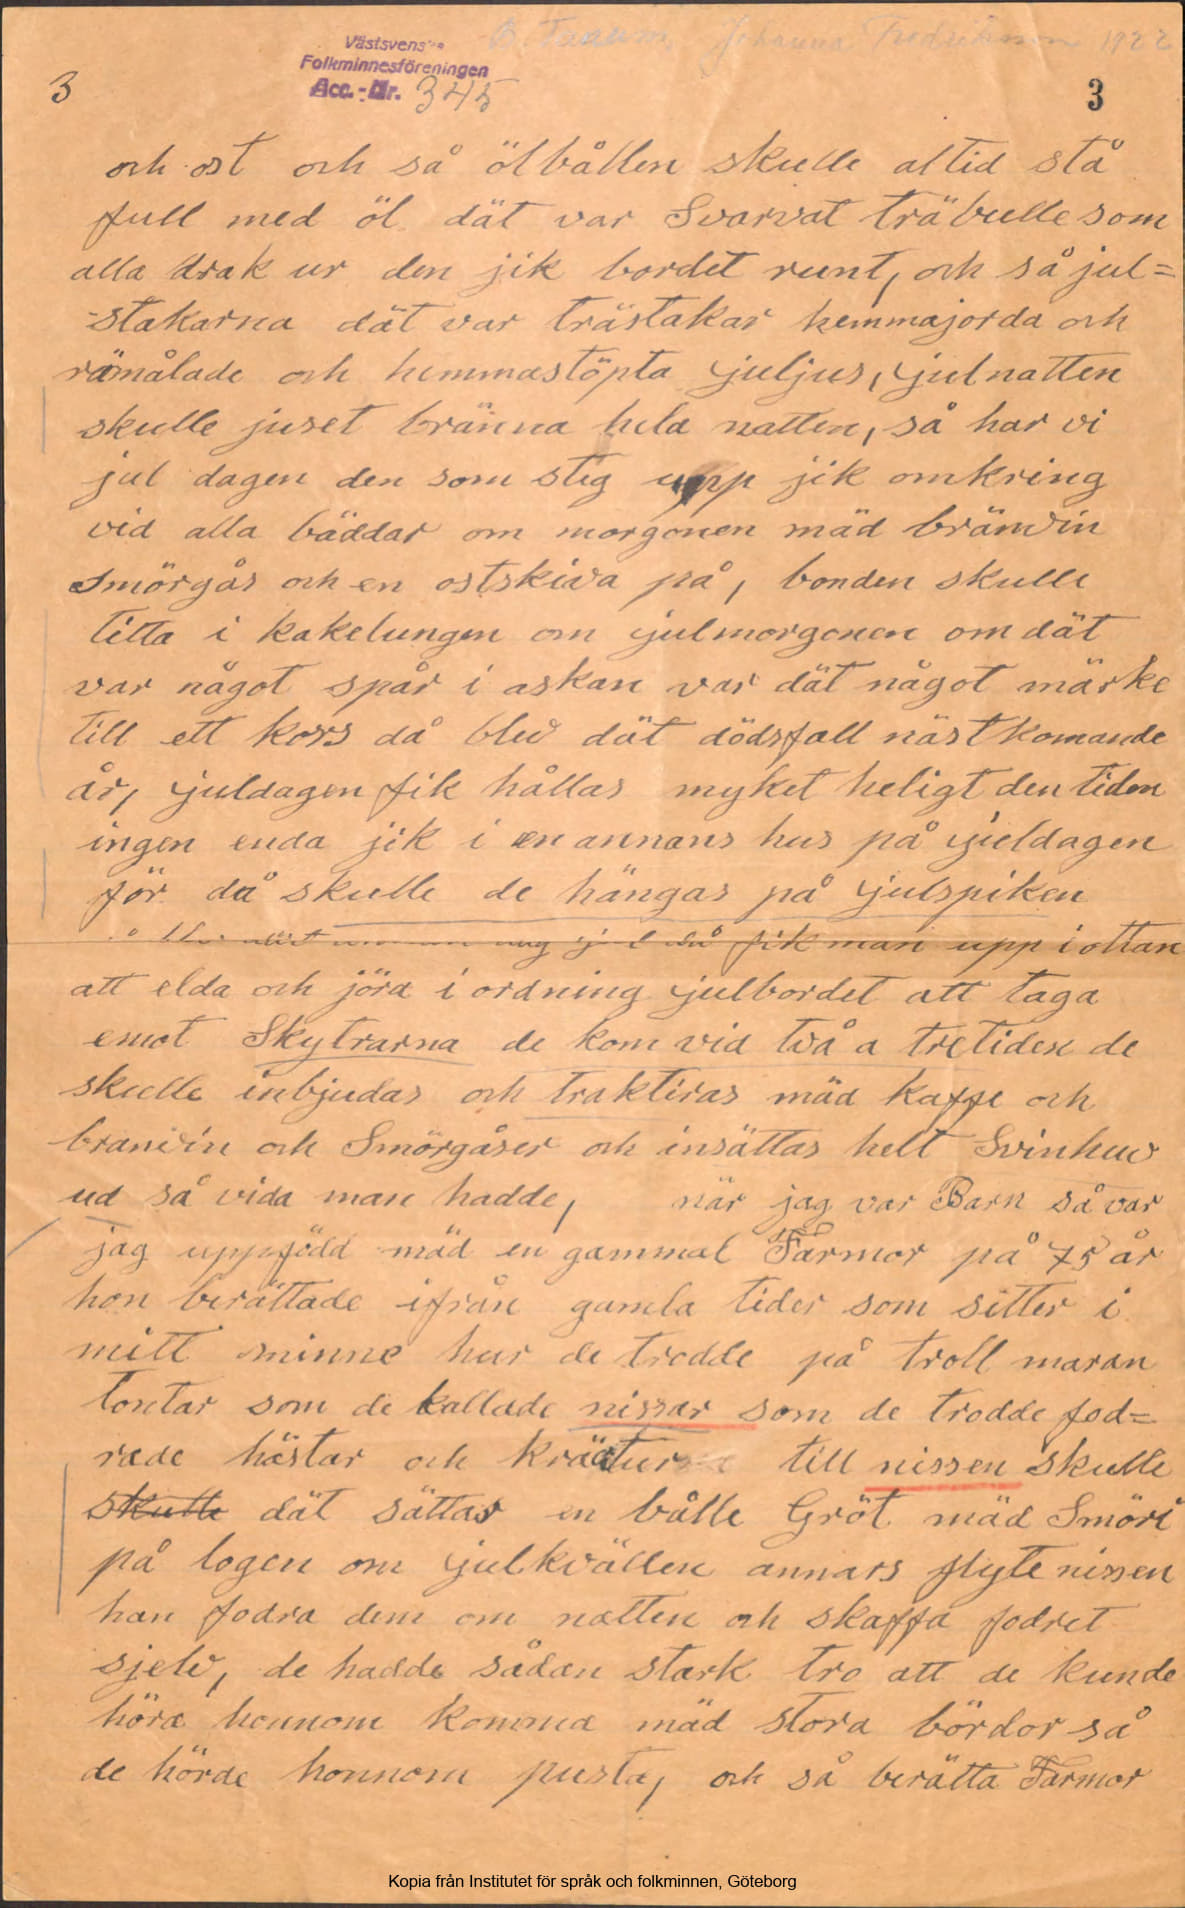 B. Tanum, Johanna Fredriksson 1922
Västsvenska
Folkminnesföreningen
Acc.-Nr. 345
3
3
och ost och så ölbållen skulle altid stå
full med öl dät var Svarvat träbulle som
alla drak ur den jik bordet runt, och så jul=
-stakarna dät var trästakar hemmajorda och
rämålade och hemmastöpta juljus, julnatten
skulle juset bränna hela natten, så har vi
jul dagen den som stig upp jik omkring
vid alla bäddar om morgonen mäd bränvin
Smörgås och en ostskiva på, bonden skulle
titta i kakelungen om julmorgonen om dät
var något spår i askan var dät något märke
till ett kors då blev dät dödsfall nästkomande
år, juldagen fik hållas myket heligt den tiden
ingen enda jik i en annans hus på juldagen
för då skulle de hängas på julspiken
annan dag jul så fik man upp i ottan
att elda och jöra i ordning julbordet att taga
emot Skytrarna de kom vid två a tretiden de
skulle inbjudas och traktiras mäd kaffe och
branvin och Smörgåser och insättas helt Svinhuv
ud så vida man hadde, när jag var Barn så var
jag uppfödd mäd en gammal Farmor på 75 år
hon berättade ifrån gamla tider som sitter i
mitt minne hur de trodde på troll maran
tomtar som de kallade nissar som de trodde fod=
rade hästar och kräatur till nissen skulle
skulle dät sättas en bålle Gröt mäd Smör i
på logen om julkvällen annars flyte nissen
han fodra dem om natten och skaffa fodret
sjelv, de hadde sådan stark tro att de kunde
höra honnom komma mäd stora bördor så
de hörde honnom pusta, och så berätta Farmor
Kopia från Institutet för språk och folkminnen, Göteborg